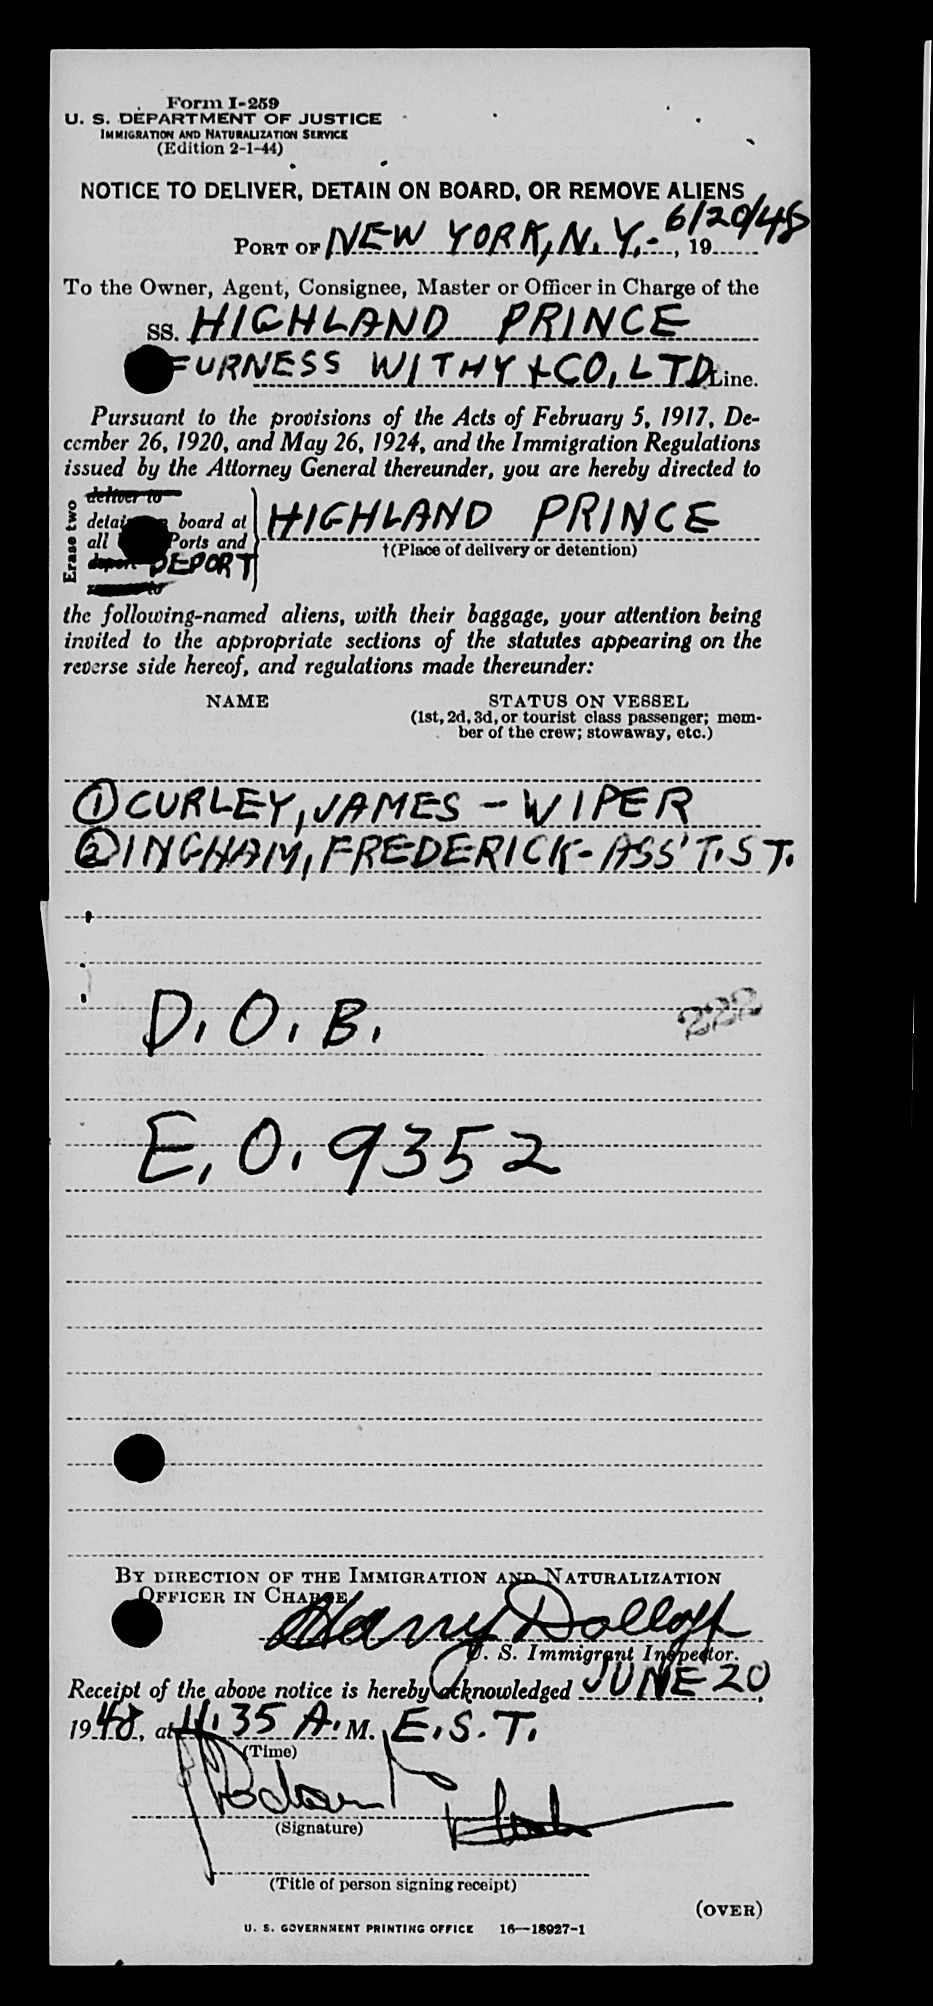 Form I-259
U. S. DEPARTMENT OF JUSTICE
IMMIGRATION AND NATURALIZATION SERVICE
(Edition 2-1-44)
NOTICE TO DELIVER, DETAIN ON BOARD, OR REMOVE ALIENS
PORT OF NEW YORK, N. Y. - 6/20/48, 19
To the Owner, Agent, Consignee, Master or Officer in Charge of the
SS. HIGHLAND PRINCE
FURNESS WITHY & CO, LTD Line.
Pursuant to the provisions of the Acts of February 5, 1917, De-
cember 26, 1920, and May 26, 1924, and the Immigration Regulations
issued by the Attorney General thereunder, you are hereby directed to
Erase two
deliver to
detain on board at HIGHLAND PRINCE
all Ports and
†(Place of delivery or detention)
deport DEPORT
the following-named aliens, with their baggage, your attention being
invited to the appropriate sections of the statutes appearing on the
reverse side hereof, and regulations made thereunder:
NAME STATUS ON VESSEL
(1st, 2d, 3d, or tourist class passenger; mem-
ber of the crew; stowaway, etc.)
① CURLEY, JAMES - WIPER
② INGHAM, FREDERICK - ASS'T. ST.
D. O. B.
222
E. O. 9352
BY DIRECTION OF THE IMMIGRATION AND NATURALIZATION
OFFICER IN CHARGE
Harry Dolloff
U. S. Immigrant Inspector.
Receipt of the above notice is hereby acknowledged JUNE 20,
1948, at 4:35 A. M. E. S. T.
(Time)
(Signature)
(Title of person signing receipt)
(OVER)
U. S. GOVERNMENT PRINTING OFFICE 16—18927-1